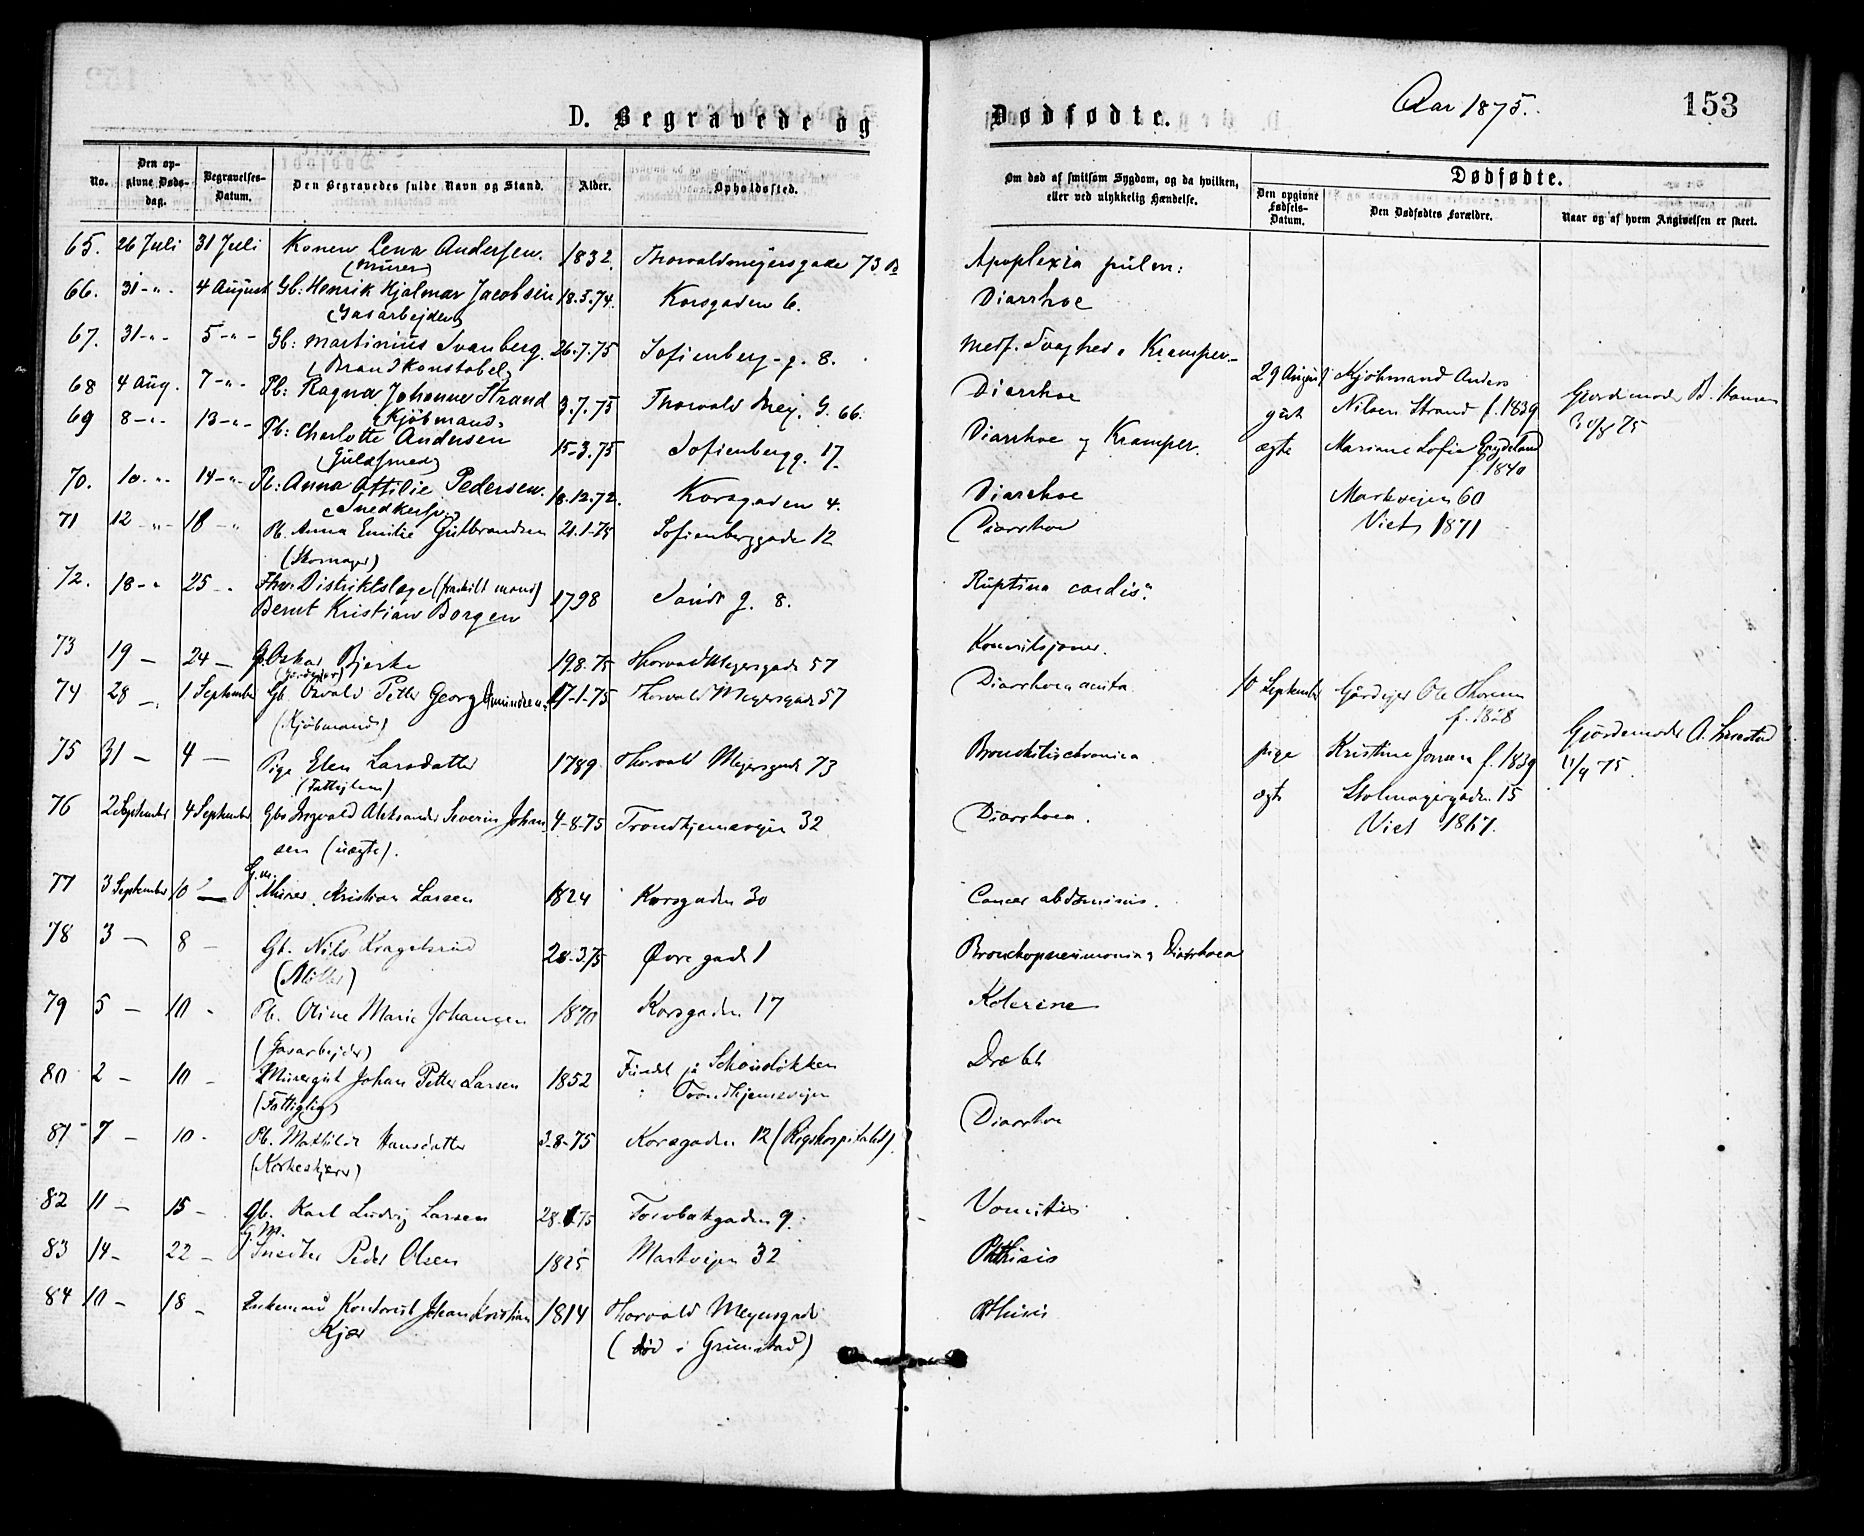 D. Begravede og Dødfødte. Aar 1875. 153
No. Den opgivne Dødsdag. Begravelses-Datum. Den Begravedes fulde Navn og Stand. Alder. Opholdssted. Om død af smitsom Sygdom, og da hvilken, eller ved ulykkelig Hændelse. Dødfødte.
Den opgivne Fødsels-Datum. Den Dødfødtes Forældre. Naar og af hvem Angivelsen er skeet.
65. 26 Juli 31 Juli Konen Lena Andersen. 1832. Thorvaldmeijersgade 73.B Apoplexia pulm:
(Murer)
66. 31-"- 4 August Gb: Henrik Hjalmar Jacobsen 18.3.74. Korsgaden 6. Diarrhoe
(Gasarbejder)
67. 31-"- 5-"- Gb: Martinius Svanberg. 26.7.75 Sofienberg-g. 8. Medf. Svaghed & Kramper-
(Brandkonstabel)
68 4 Aug. 7-"- Pb: Ragna Johanne Strand 3.7.75 Thorvald Mey. G. 66. Diarrhoe
(Kjøbmand)
69 8-"- 13-"- Pb: Charlotte Andersen 15-3.75 Sofienbergg. 17 Diarrhoe og Kramper.
(Guldsmed)
70. 10-"- 14-"- Pb: Anna Ottilie Pedersen. 18.12.72. Korsgaden 4. Diarrhoe
(Snedkersv.)
71 12-"- 18-" Pb. Anna Emilie Gulbrandsen 21.1.75 Sofienberggade 12 Diarrhoe
(Skomager)
72. 18-" 25-" Fhv. Distriktslæge (fraskilt mand) 1798 Sandb g. 8. Ruptura cordis.
Bernt Kristian Borgen
73 19 - 24 - Gb. Oskar Bjerke 19.8.75 Thorvald Meyersgade 57 Konvulsjoner.
(Gårdejer)
74 28 - 1 September Gb. Osvald Petter Georg Amundsen 17-1-75 Thorvald Meyersgade 57 Diarrhoea acuta.
(Kjøbmand)
75 31 - 4 - Pige Elen Larsdatter 1789 Thorvald Meyersgade 73 Bronchitis chronica.
(Fattiglem)
76 2 September 4 September Gb. Ingvald Aleksander Severin Johan 4-8-75 Trondhjemsvejen 32 Diarrhoea.
sen (uægte).
77 3 September 10 - G.m. Murer Kristian Larsen 1824 Korsgaden 30 Cancer abdominis.
78 3 - 8 - Gb. Nils Kragelsrud 28.3.75 Øvregade 1 Bronchopneumonia & Diarrhoea
(Møller)
79 5 - 10 - Pb. Oline Marie Johansen 1870 Korsgaden 17 Kolerine
(Gasarbejder)
80 2 - 10 - Murergut Johan Petter Larsen 1852 Fundet på Schouløkken Dræbt
(Fattiglig) i Trondhjemsvejen
81 7 - 10 - Pb. Mathilde Hansdatter 3-8-75 Korsgaden 12 (Rigshospitalet). Diarrhoe
(Korkeskjærer)
82 11 - 15 - Gb. Karl Ludvig Larsen 28. 75 Torvbakgaden 9. Vomitus
83 14 - 22 - G.M. Snedker Peder Olsen 1825 Markvejen 32 Phthisis
84 10 - 18 - Enkemand Konduktør Johan Kristian 1814 Thorvald Meyersgade Phthisis
Kjær (død i Grimstad)
29 August Kjøbmand Anders Gjordemoder B. Hansen
gut Nilsen Strand f. 1839 30/8 75
ægte Mariane Sofie Engdeland
f. 1840
Markvejen 60
Viet 1871
10 September Gårdejer Ole Thoresen
f. 1828 Gjordemoder A.
pige Kristine Jonsen f. 1839 11/9 75.
ægte Stolmagergaden 15
Viet 1867.